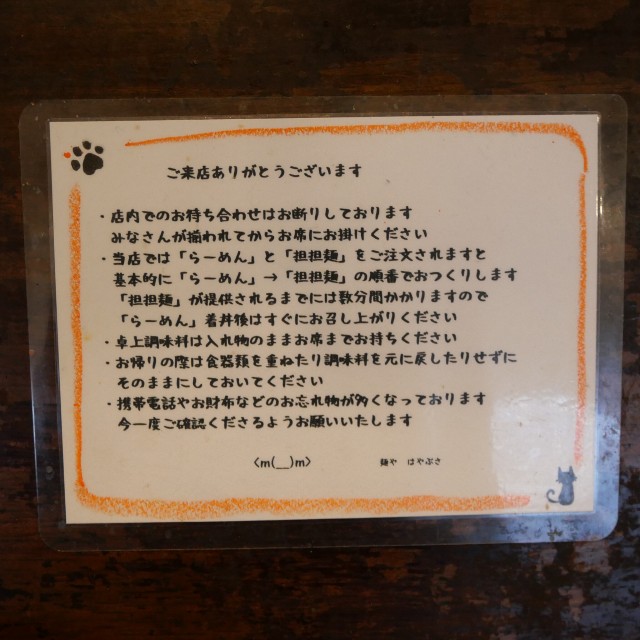 ご来店ありがとうございます
・店内でのお待ち合わせはお断りしております
みなさんが揃われてからお席にお掛けください
・当店では「らーめん」と「担担麺」をご注文されますと
基本的に「らーめん」→「担担麺」の順番でおつくりします
「担担麺」が提供されるまでには数分間かかりますので
「らーめん」着丼後はすぐにお召し上がりください
・卓上調味料は入れ物のままお席までお持ちください
・お帰りの際は食器類を重ねたり調味料を元に戻したりせずに
そのままにしておいてください
・携帯電話やお財布などのお忘れ物が多くなっております
今一度ご確認くださるようお願いいたします
<m(__)m> 麺や はやぶさ